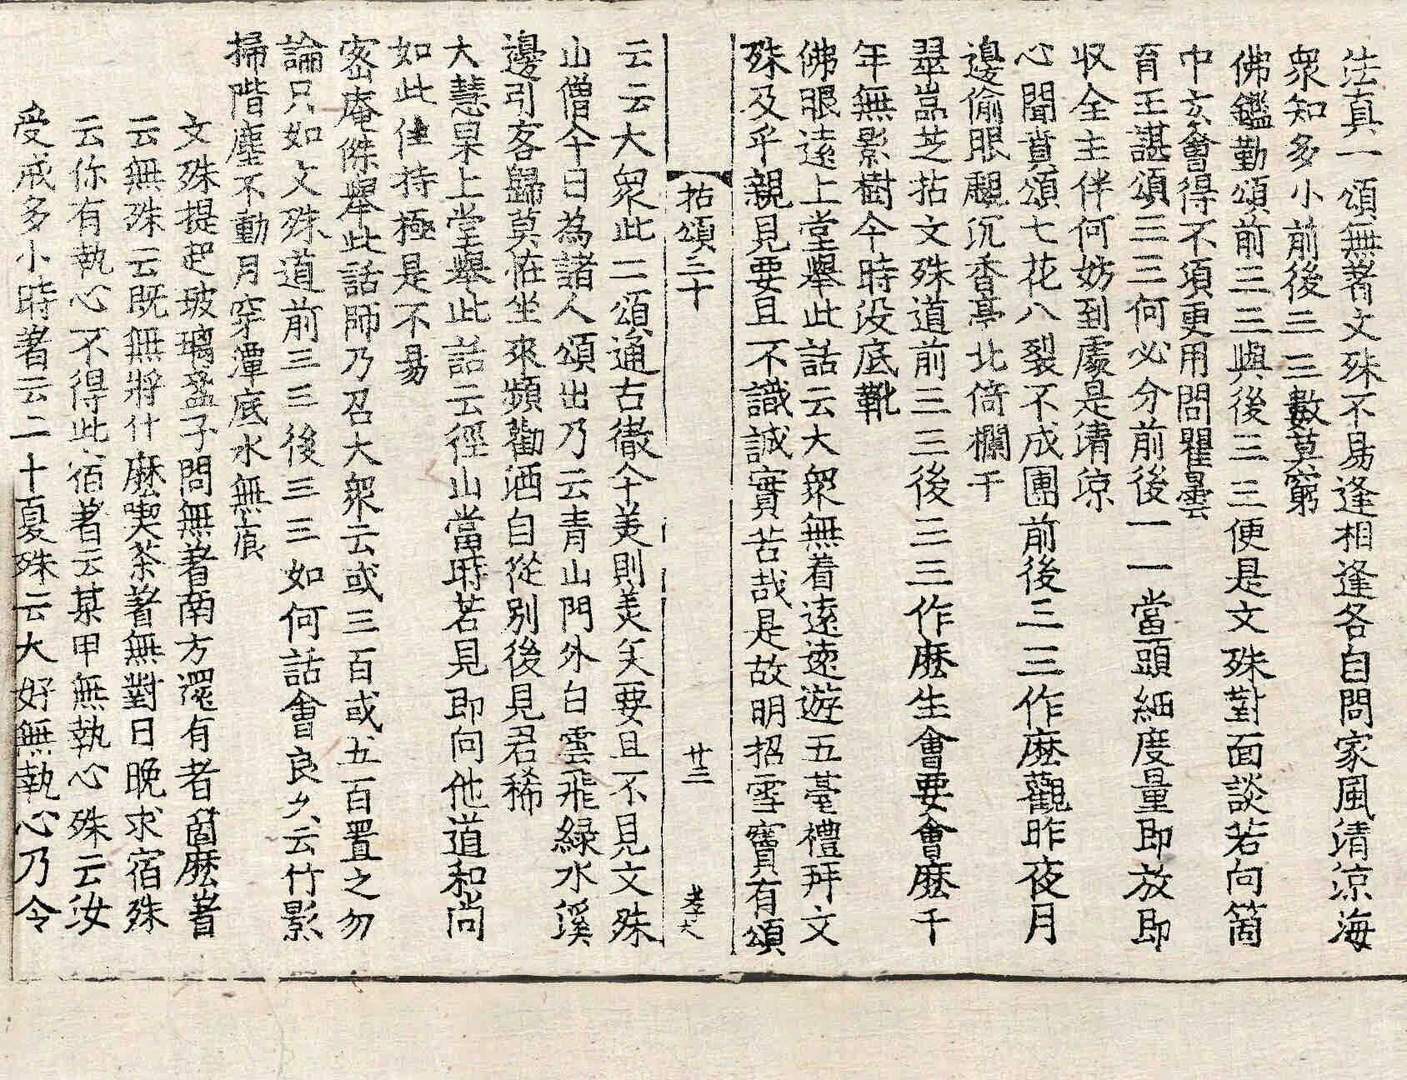 法真一頌無著文殊不易逢相逢各自問家風清涼海
衆知多小前後三三數莫窮
佛鑑勤頌前三三與後三三便是文殊對面談若向箇
中玄會得不須更用問瞿曇
育王諶頌三三何必分前後一一當頭細度量即放即
収全主伴何妨到處是清涼
心聞賁頌七花八裂不成團前後三三作麽觀昨夜月
邊偷眼覰沉香亭北倚欄干
翠嵓芝拈文殊道前三三後三三作麽生會要會麽千
年無影樹今時没底靴
佛眼遠上堂舉此話云大衆無着遠遠遊五臺禮拜文
殊及乎親見要且不識誠實苦哉是故明招雪竇有頌
拈頌二十 廿三 孝大
云云大衆此二頌通古徹今美則美矣要且不見文殊
山僧今日為諸人頌出乃云青山門外白雲飛緑水溪
邊引客歸莫恠坐來頻勸酒自從別後見君稀
大慧杲上堂舉此話云徑山當時若見即向他道和尚
如此住持極是不易
密庵傑舉此話師乃召大衆云或三百或五百置之勿
論只如文殊道前三三後三三如何話會良久云竹影
掃階塵不動月穿潭底水無痕
文殊提起玻璃盞子問無著南方還有者箇麽著
云無殊云既無將什麽喫茶著無對日晚求宿殊
云你有執心不得此宿著云某甲無執心殊云汝
受戒多小時著云二十夏殊云大好無執心乃令